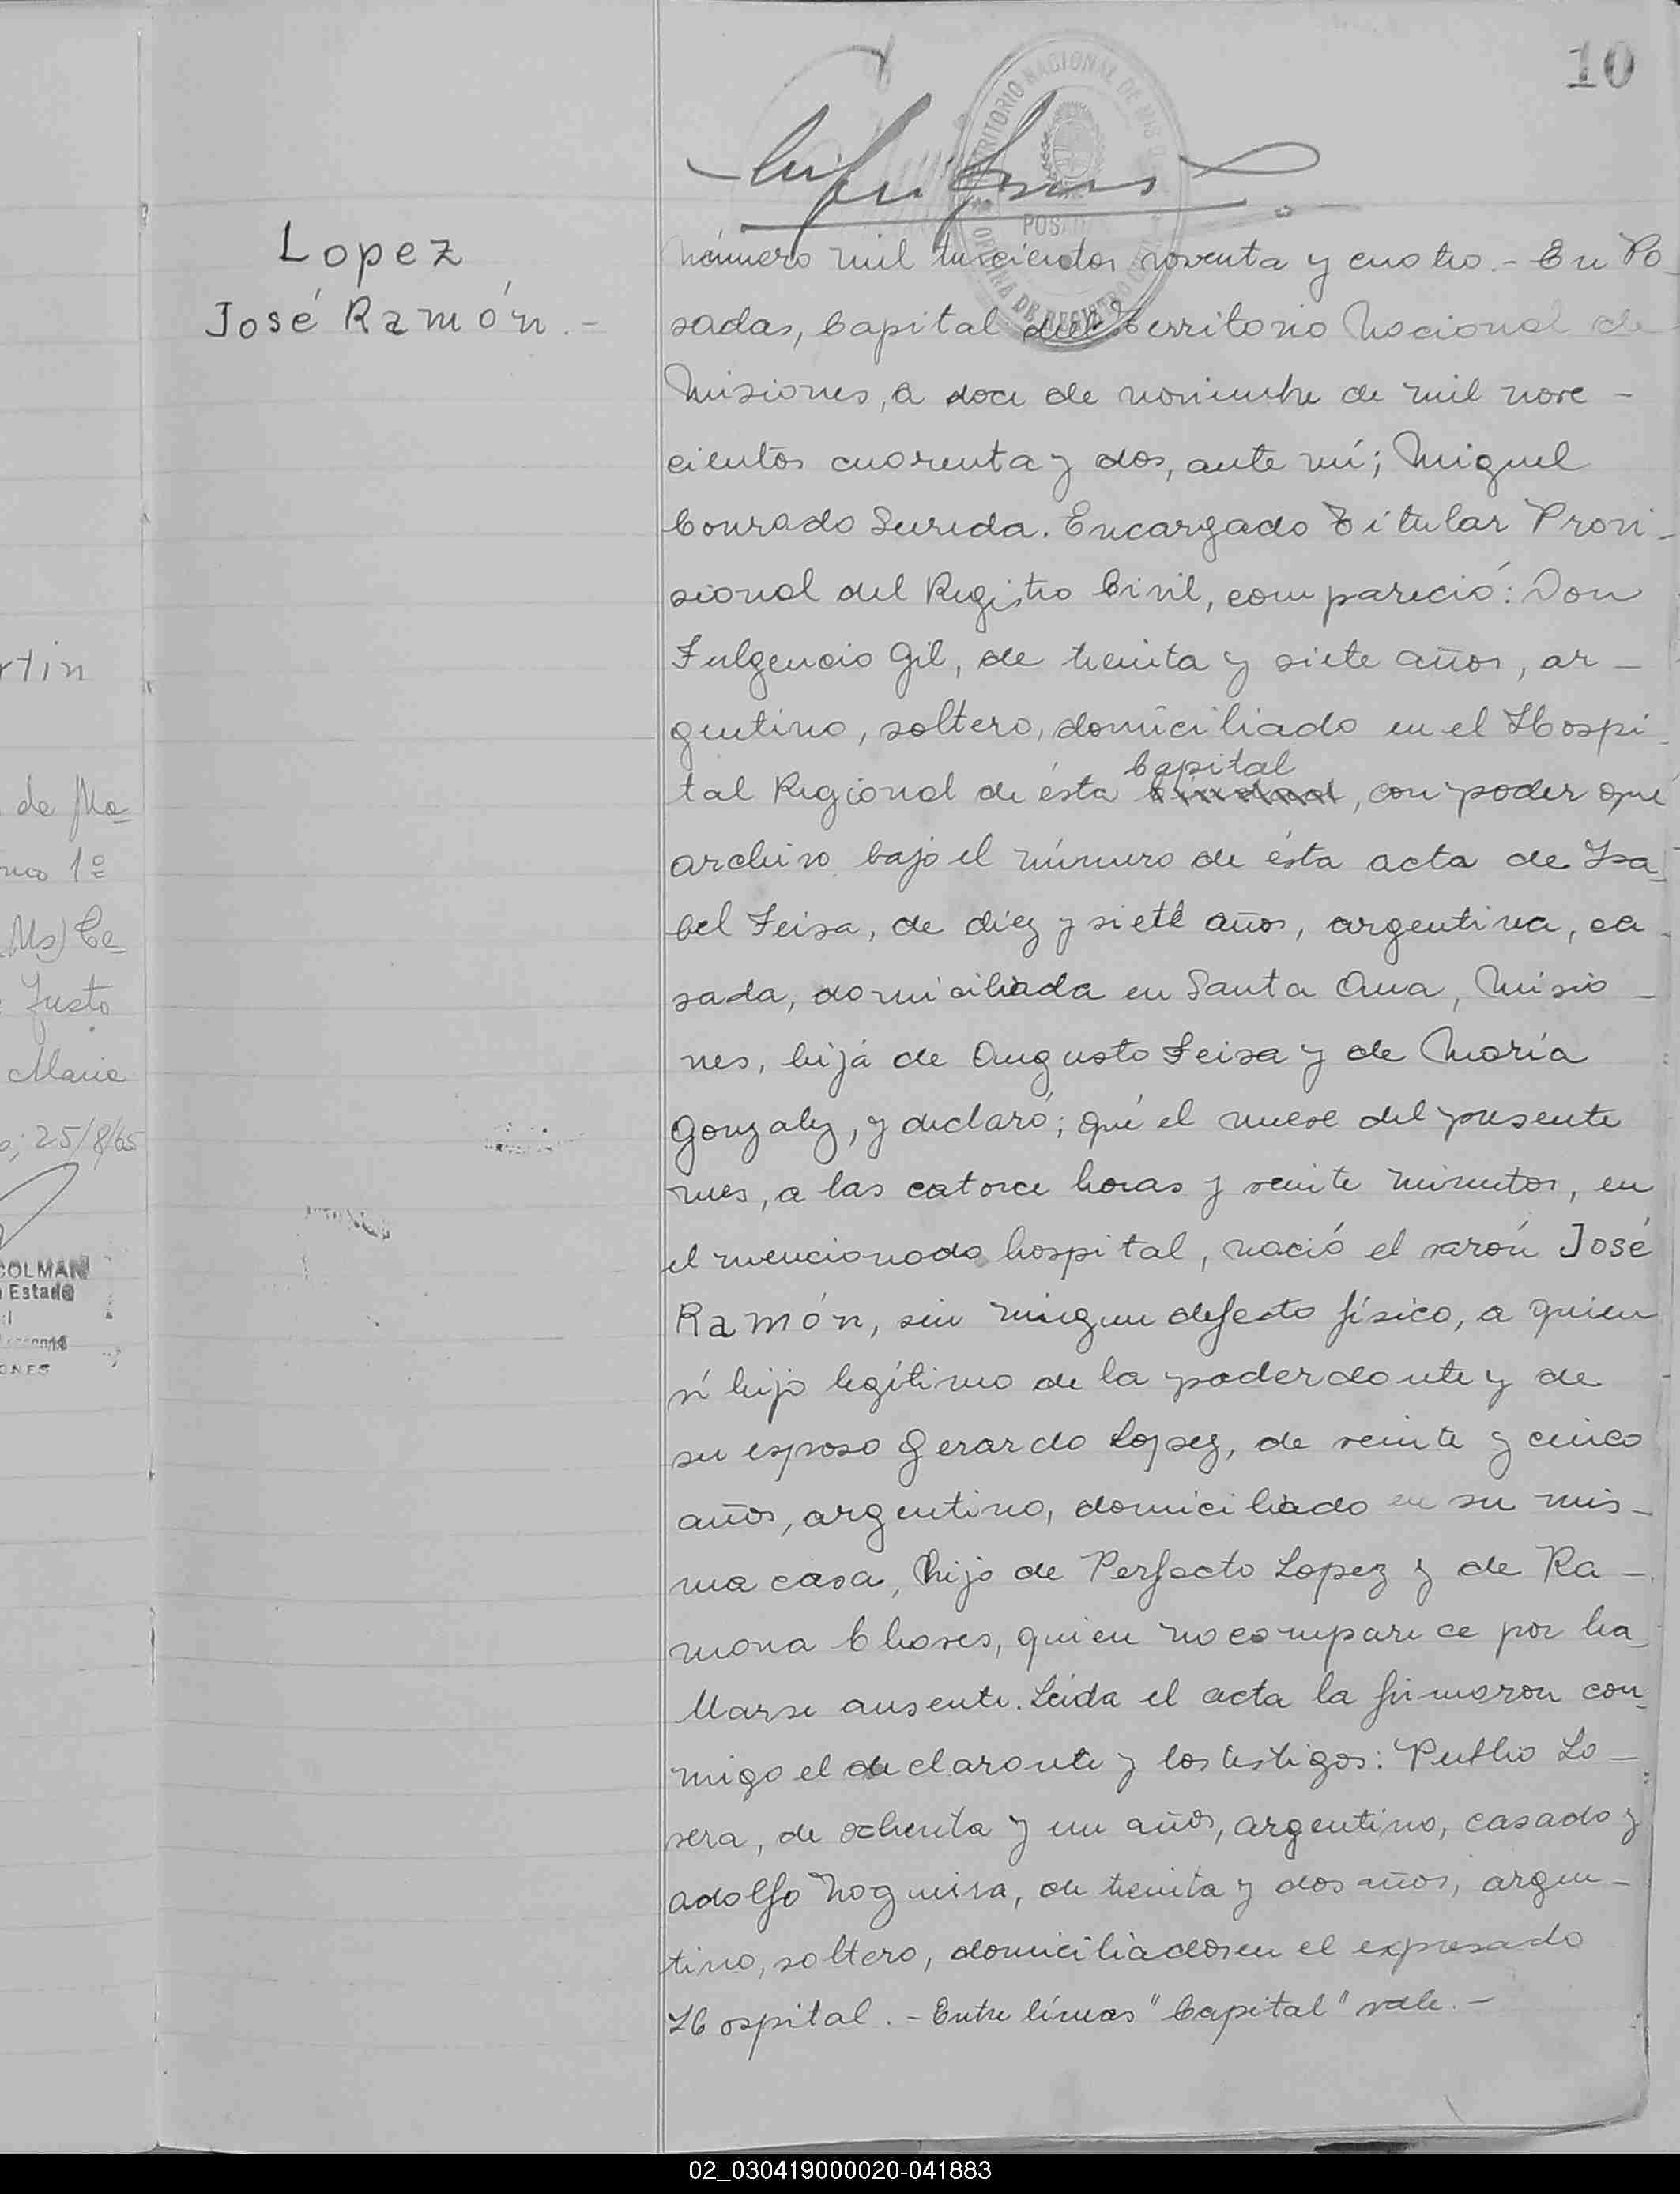 10
TERRITORIO NACIONAL DE MIS
POSADAS
OFICINA DE REGISTRO CIVIL
Lopez
José Ramón.-
Número mil trescientos noventa y cuatro.- En Po-
sadas, Capital del Territorio Nacional de
Misiones, a doce de noviembre de mil nove-
cientos cuarenta y dos, ante mí; Miguel
Conrado Sureda. Encargado Titular Provi-
sional del Registro Civil, compareció: Don
Fulgencio Gil, de treinta y siete años, ar-
gentino, soltero, domiciliado en el Hospi-
Capital
tal Regional de ésta ciudad, con poder que
archivo bajo el número de ésta acta de Isa-
bel Feisa, de diez y siete años, argentina, ca-
sada, domiciliada en Santa Ana, Misio-
nes, hija de Augusto Feisa y de María
Gonzalez, y declaró; que el nueve del presente
mes, a las catorce horas y veinte minutos, en
el mencionado hospital, nació el varón José
Ramón, sin ningun defecto físico, a quien
ví hijo legítimo de la poderdante y de
su esposo Gerardo Lopez, de veinte y cinco
años, argentino, domiciliado en su mis-
ma casa, hijo de Perfecto Lopez y de Ra-
mona Choves, quien no comparece por ha-
llarse ausente. Leída el acta la firmaron con-
migo el declarante y los testigos: Publio Lo-
vera, de ochenta y un años, argentino, casado y
Adolfo Nogueira, de treinta y dos años, argen-
tino, soltero, domiciliados en el expresado
Hospital.- Entre líneas "Capital" vale.-
rtin
de Ma-
1º
Ms) Ce-
Justo
Maria
25/8/65
COLMAN
Estado
ONES
02_030419000020-041883